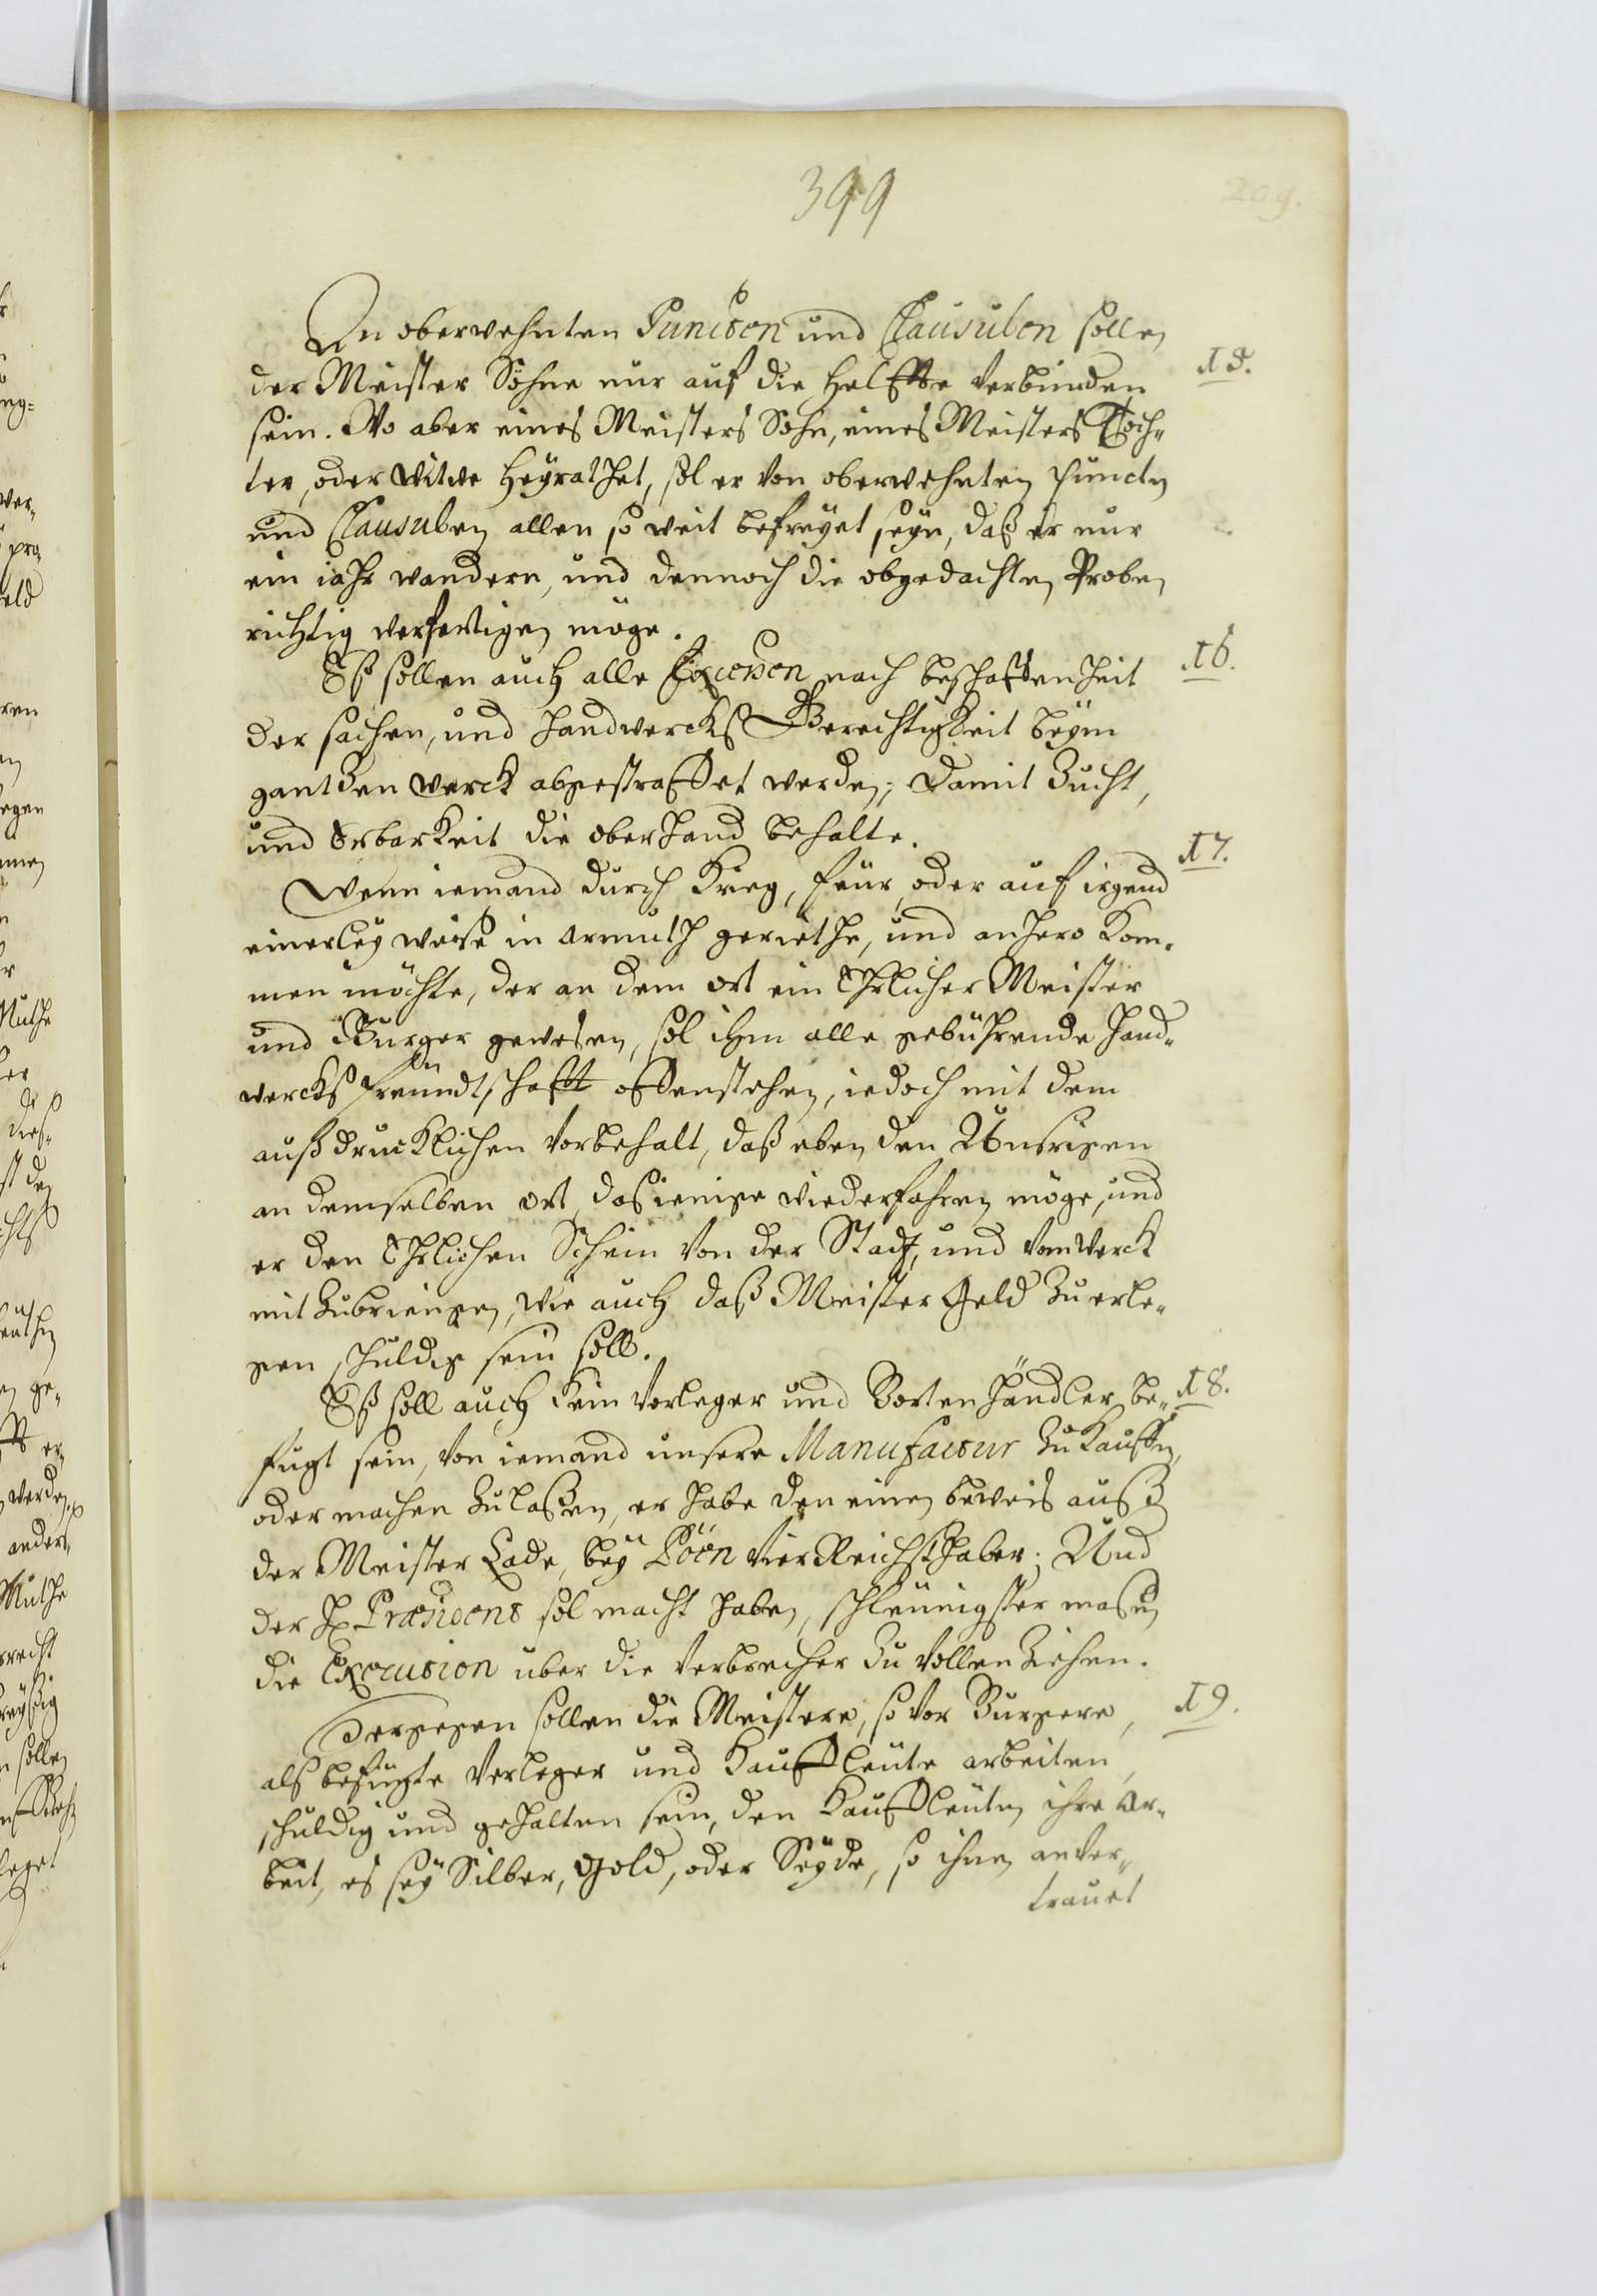 399
209.
In oberwehnten Puncten und Clausulen sollen
15.
der Meister Söhne nur auf die Helffte verbunden
sein. Wo aber eines Meisters Sohn, eines Meisters Toch-
ter, oder Witwe heyrathet, sol er von oberwehnten Puncten
und Clausulen allen so weit befreyet seyn, daß er nur
ein iahr wandern, und dennoch die obgedachten Proben
richtig verfertigen möge.
16.
Eß sollen auch alle Excessen nach beschaffenheit
der sachen, und handwercks Gerechtigkeit beym
gantzen werck abgestraffet werden; damit Zucht,
und Erbarkeit die oberhand behalte.
17.
Wenn iemand durch Krieg, feür, oder auf irgend
einerley weise in armuth geriethe, und anhero kom-
men möchte, der an dem ort ein Ehrlicher Meister
und Burger gewesen, sol ihm alle gebührende hand-
wercks freundtschafft offenstehen, iedoch mit dem
außdrucklichen vorbehalt, daß eben den Unsrigen
an demselben ort dasienige wiederfahren möge, und
er den Ehrlichen Schein von der Stadt, und vom werck
mit zubringen, wie auch daß Meister Geld zu erle-
gen schuldig sein soll.
18.
Eß soll auch kein Vorleger und Borten händler be-
fugt sein, von iemand unsere Manufactur zu kauffen,
oder machen zu laßen, er habe den einen beweis auß
der Meister Lade, bey Pöen vier Reichsthaler; Und
der H Præsident sol macht haben, schleünigster maßen
die Execution uber die verbrecher zu vollenziehen.
19.
Dergegen sollen die Meistere, so vor Burgere,
als befugte Verleger und Kauffleüte arbeiten,
schuldig und gehalten sein, den Kauffleüten ihre Ar-
beit, es sey Silber, Gold, oder Seyde, so ihnen anver-
trauet